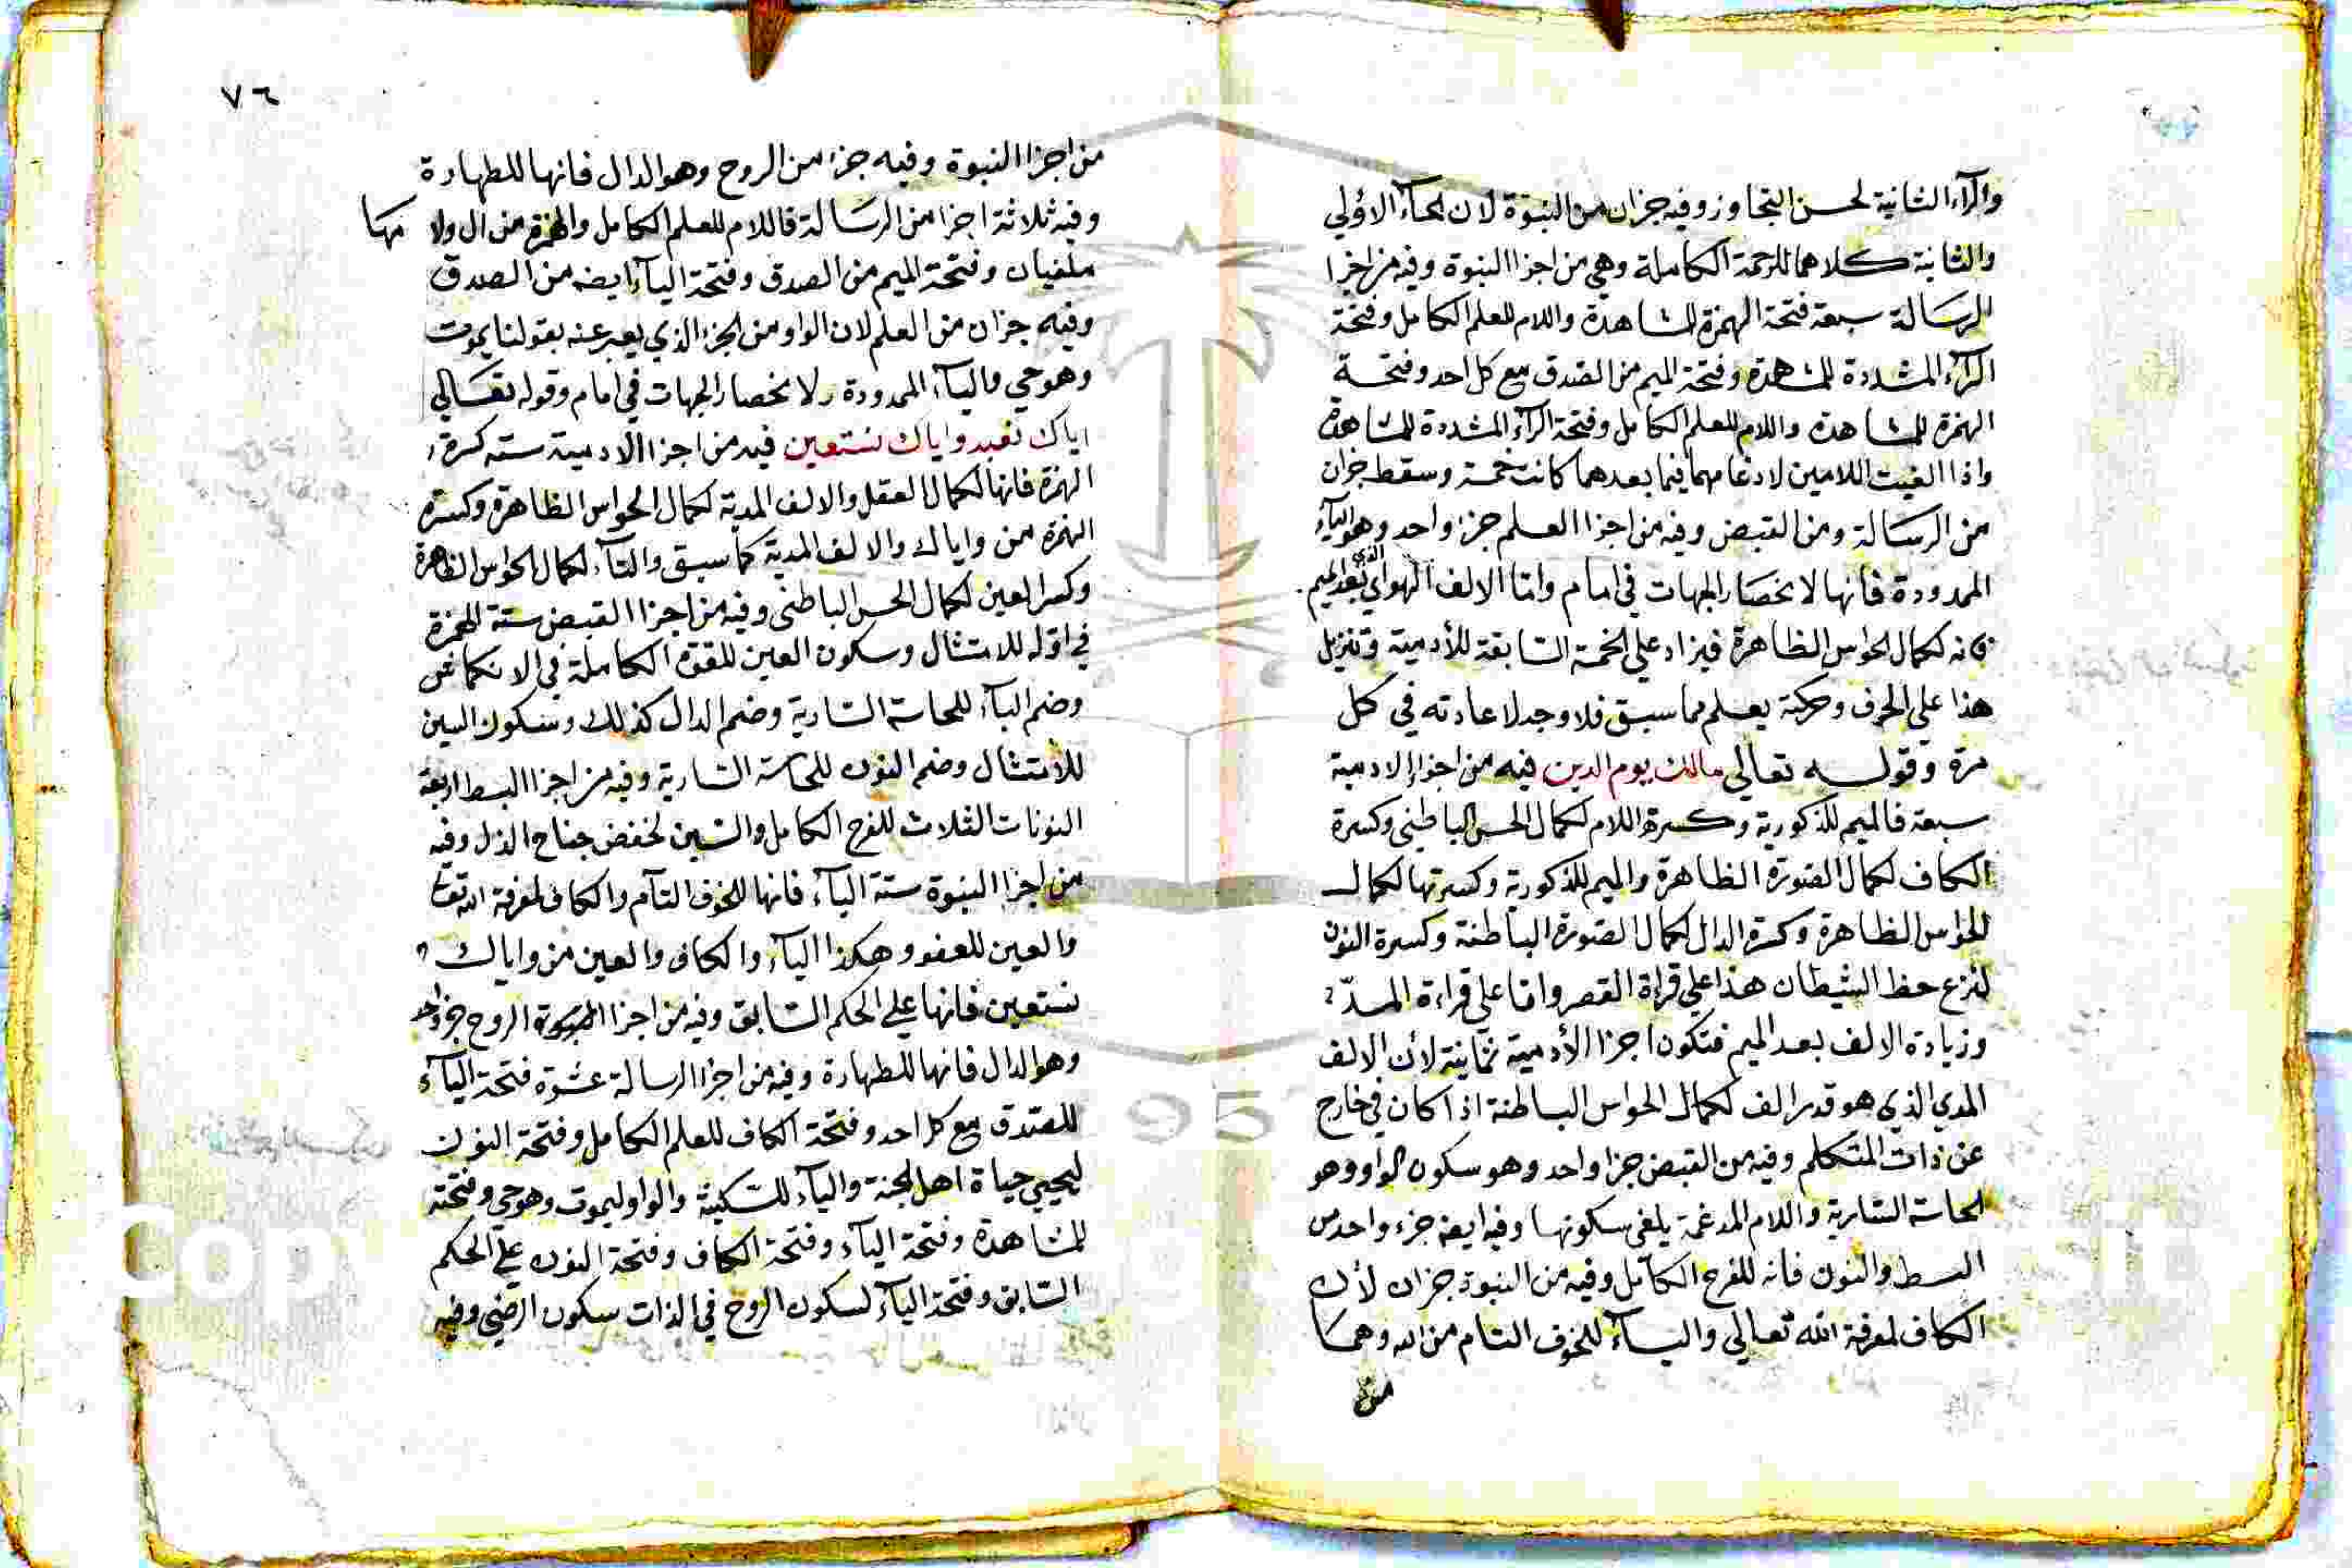 والرآء الثانية لحسن التجاوز وفيه جزان من النبوة لان الحاء الاولي
والثانية كلاهما للرحمة الكاملة وهي من اجزا النبوة وفيه من اجزا
الرسالة سبعة فتحة الهمزة للمشاهدة واللام للعلم الكامل وفتحة
الرآء المشددة للمشاهدة وفتحة الميم من الصدق مع كل احد وفتحة
الهمزة للمشاهدة واللام للعلم الكامل وفتحة الرآء المشددة للمشاهدة
واذا الغيت اللامين لادغامهما فيما بعدهما كانت خمسة وسقط جزان
من الرسالة ومن القبض وفيه من اجزا العلم جزا واحد وهو اليآء
الممدودة فانها لانحصار الجهات في امام واما الالف الهوائي الذي بعد الميم
فانه لكمال الحواس الظاهرة فيزاد على الخمسة السابقة للأدمية وتنزيل
هذا على الحرف وحركته يعلم مما سبق فلا وجه لاعادته في كل
مرة وقوله تعالى مالك يوم الدين فيه من اجزا الادمية
سبعة فالميم للذكورية وكسرة اللام لكمال الحس الباطني وكسرة
الكاف لكمال الصورة الظاهرة والميم للذكورية وكسرتها لكمال
الحواس الظاهرة وكسرة الدال لكمال الصورة الباطنة وكسرة النون
لنزع حظ الشيطان هذا علي قراة القصر واما علي قراءة المد
وزيادة الالف بعد الميم فتكون اجزا الأدمية ثمانية لأن الالف
المدي الذي هو قدر الف لكمال الحواس الباطنة اذا كان في خارج
عن ذات المتكلم وفيه من القبض جزا واحد وهو سكون الواو وهو
لحاسة السارية واللام المدغمة يلغى سكونها وفيه ايضه جزء واحد من
البسط والنون فانه للفرح الكامل وفيه من النبوة جزان لأن
الكاف لمعرفة الله تعالي واليآء للخوف التام من الله وهما
من
٧٦
من اجزا النبوة وفيه جزا من الروح وهو الدال فانها للطهارة
وفيه ثلاثة اجزا من الرسالة فاللام للعلم الكامل والهمزة من ال ولا مها
ملغيان وفتحة الميم من الصدق وفتحة اليآء ايضه من الصدق
وفيه جزان من العلم لان الواو من الجزء الذي يعبر عنه بقولنا يموت
وهو حي واليآء الممدودة لانحصار الجهات في امام وقوله تعالي
اياك نعبد واياك نستعين فيه من اجزا الادمية ستة كسرة
الهمزة فانها لكمال العقل والالف المدية لكمال الحواس الظاهرة وكسرة
الهمزة من واياك والالف المدية كما سبق والتآء لكمال الحواس الظاهرة
وكسر العين لكمال الحس الباطني وفيه من اجزا القبض ستة الهمزة
في اوله للامتثال وسكون العين للقوة الكاملة في الانكماش
وضم البآء للحاسة السارية وضم الدال كذلك وسكون السين
للأمتثال وضم النون للحاسة السارية وفيه من اجزا البسط اربعة
النونات الثلاث للفرح الكامل والسين لخفض جناح الذل وفيه
من اجزا النبوة ستة اليآء فانها للخوف التآم والكاف لمعرفة الله تعا
والعين للعفو وهكذا اليآء والكاف والعين من واياك
نستعين فانها علي الحكم السابق وفيه من اجزا الروح جزء واحد
وهو الدال فانها للطهارة وفيه من اجزا الرسالة عشرة فتحة اليآء
للصدق مع كل احد وفتحة الكاف للعلم الكامل وفتحة النون
ليحيي حياة اهل الجنة والبآء للسكينة والواو ليموت وهو حي وفتحته
للمشاهدة وفتحة اليآء وفتحة الكاف وفتحة النون علي الحكم
السابق وفتحة التآء لسكون الروح في الذات سكون الرضي وفيه